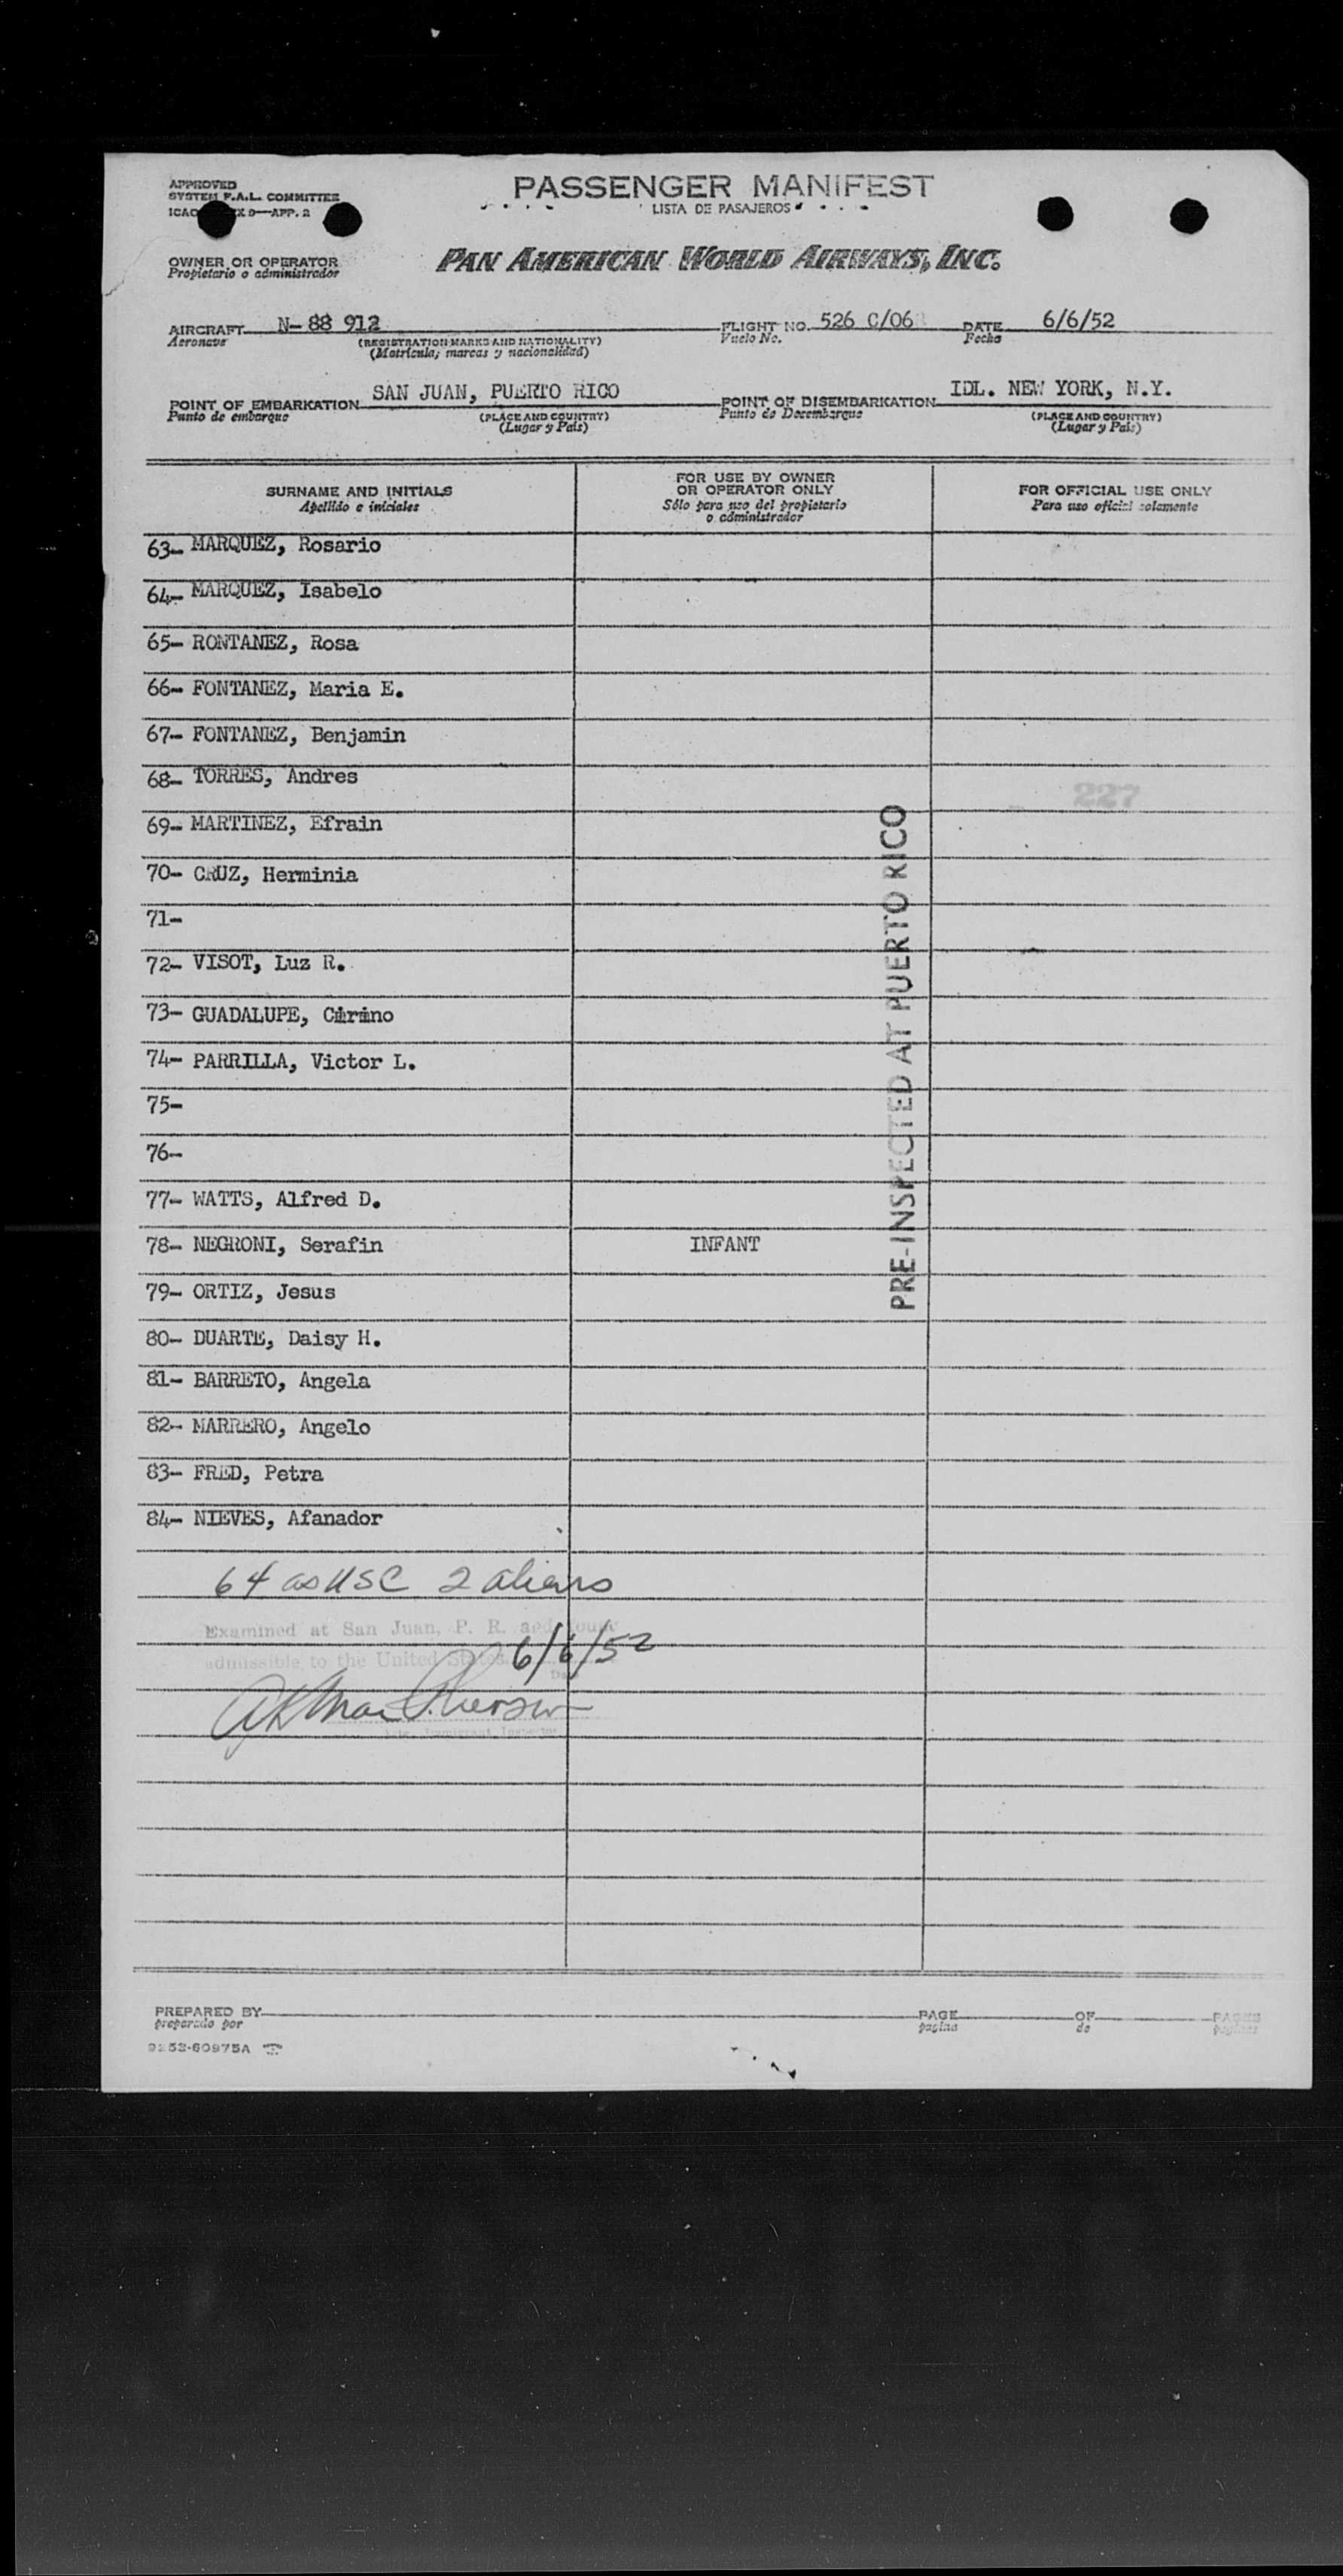 APPROVED
SYSTEM F.A.L. COMMITTEE
ICAO X 9—APP. 2
PASSENGER MANIFEST
LISTA DE PASAJEROS
OWNER OR OPERATOR
Propietario o administrador
PAN AMERICAN WORLD AIRWAYS, INC.
AIRCRAFT N- 88 912 FLIGHT NO. 526 C/06 DATE 6/6/52
Aeronave (REGISTRATION MARKS AND NATIONALITY) Vuelo No. Fecha
(Matrícula; marcas y nacionalidad)
POINT OF EMBARKATION SAN JUAN, PUERTO RICO POINT OF DISEMBARKATION IDL. NEW YORK, N.Y.
Punto de embarque (PLACE AND COUNTRY) Punto de Desembarque (PLACE AND COUNTRY)
(Lugar y País) (Lugar y País)
SURNAME AND INITIALS
Apellido e iniciales
FOR USE BY OWNER
OR OPERATOR ONLY
Sólo para uso del propietario
o administrador
FOR OFFICIAL USE ONLY
Para uso oficial solamente
63- MARQUEZ, Rosario
64- MARQUEZ, Isabelo
65- RONTANEZ, Rosa
66- FONTANEZ, Maria E.
67- FONTANEZ, Benjamin
68- TORRES, Andres
227
69- MARTINEZ, Efrain
70- CRUZ, Herminia
71-
72- VISOT, Luz R.
73- GUADALUPE,
74- PARRILLA, Victor L.
75-
76-
77- WATTS, Alfred D.
78- NEGRONI, Serafin INFANT
79- ORTIZ, Jesus
80- DUARTE, Daisy H.
81- BARRETO, Angela
82- MARRERO, Angelo
83- FRED, Petra
84- NIEVES, Afanador
PRE-INSPECTED AT PUERTO RICO
64 as USC 2 aliens
Examined at San Juan, P. R. and found
admissible to the United States 6/6/52
Date
Immigrant Inspector
PREPARED BY PAGE OF PAGES
preparado por página de páginas
9253-60975A